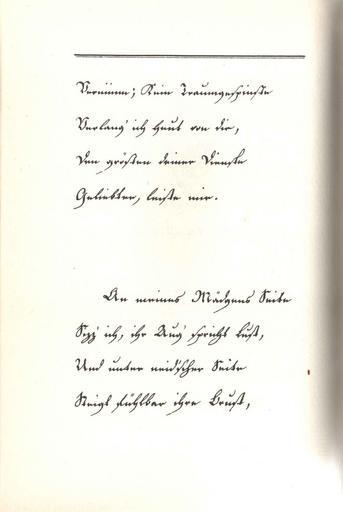 Vernimm; Kein Traumgespinste
Verlang' ich heut von dir,
Den größten deiner Dienste
Geliebter, leiste mir.
An meines Mädgens Seite
Sizz' ich, ihr Aug' spricht Lust,
Und unter neidscher Seite
Steigt fühlbar ihre Brust,